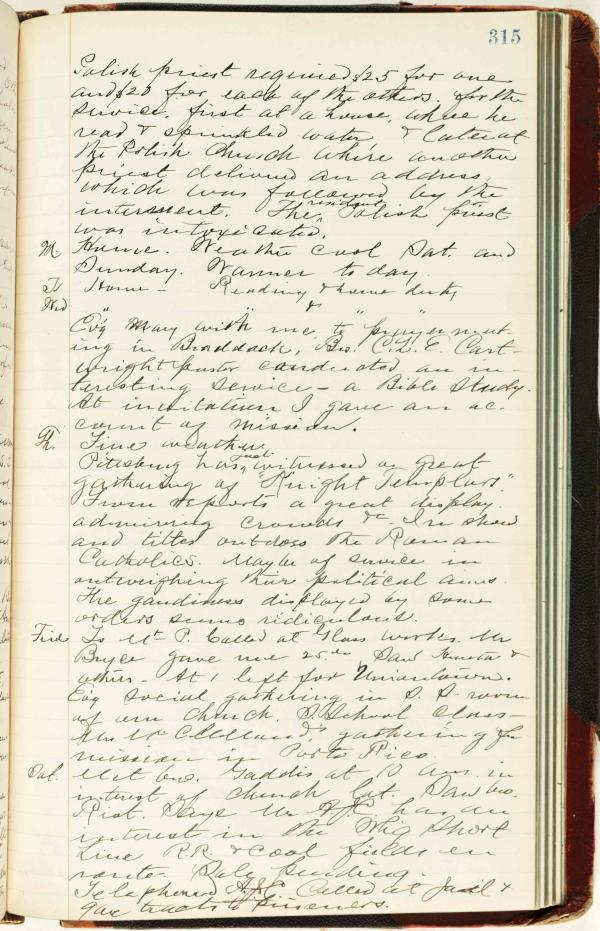 315
Polish priest required $25 for one
and $20 for each of the others, for the
service, first at a house, where he
read & sprinkled water, & later at
the Polish Church where another
priest delivered an address,
which was followed by the
interment. The resident Polish priest
was intoxicated.
M Home. Weather cool Sat. and
Sunday. Warmer to day.
T Home - Reading & home duty
Wed &
Ev'g "Mary with" me to "prayer meet-
ing in Braddock, Bro. C. L. E. Cart-
wright pastor conducted an in-
teresting service - a Bible Study.
At invitation I gave an ac-
count of mission.
Th. Fine weather
Pittsburg has just witnessed a great
gathering of "Knight Templars"
From reports a great display.
admiring crowds &c. In show
and titles outdoes the Roman
Catholics. Maybe of service in
outweighing their political aims.
The gaudiness displayed by some
orders seems ridiculous.
Frid To Mt. P. Called at Glass works. Mr
Bryce gave me 25.00 Saw &
others - At 1 left for Uniontown.
Ev'g social gathering in S. S. room
of our Church. S. School Class -
Mrs McClelland's, gathering for
mission in Porto Rico.
Sat. Met bro. Gaddis at 10 A.M. in
interest of church lot. Saw bro.
Rist. Says Mr has an
interest in the Whig Short
Line R.R. & coal fields en
route. Sale pending.
Telephoned Called at Jail &
gave tracts to Prisoners.